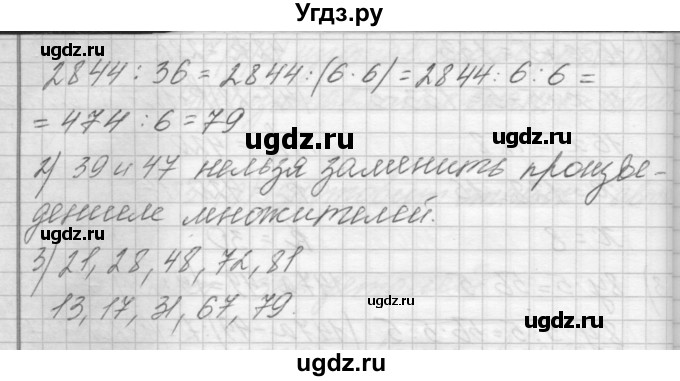 Угдз.ру
ugdz.ru ugdz.ru
2844 : 36 = 2844:(6·6) = 2844: 6:6 =
ugdz.ru
= 474 : 6 = 79
ugdz.ru ugdz.ru
2) 39 и 47 нельзя заменить произве-
ugdz.ru
дением множителей.
ugdz.ru ugdz.ru
3) 21, 28, 48, 72, 81
ugdz.ru
13, 17, 31, 67, 79.
ugdz.ru ugdz.ru
ugdz.ru